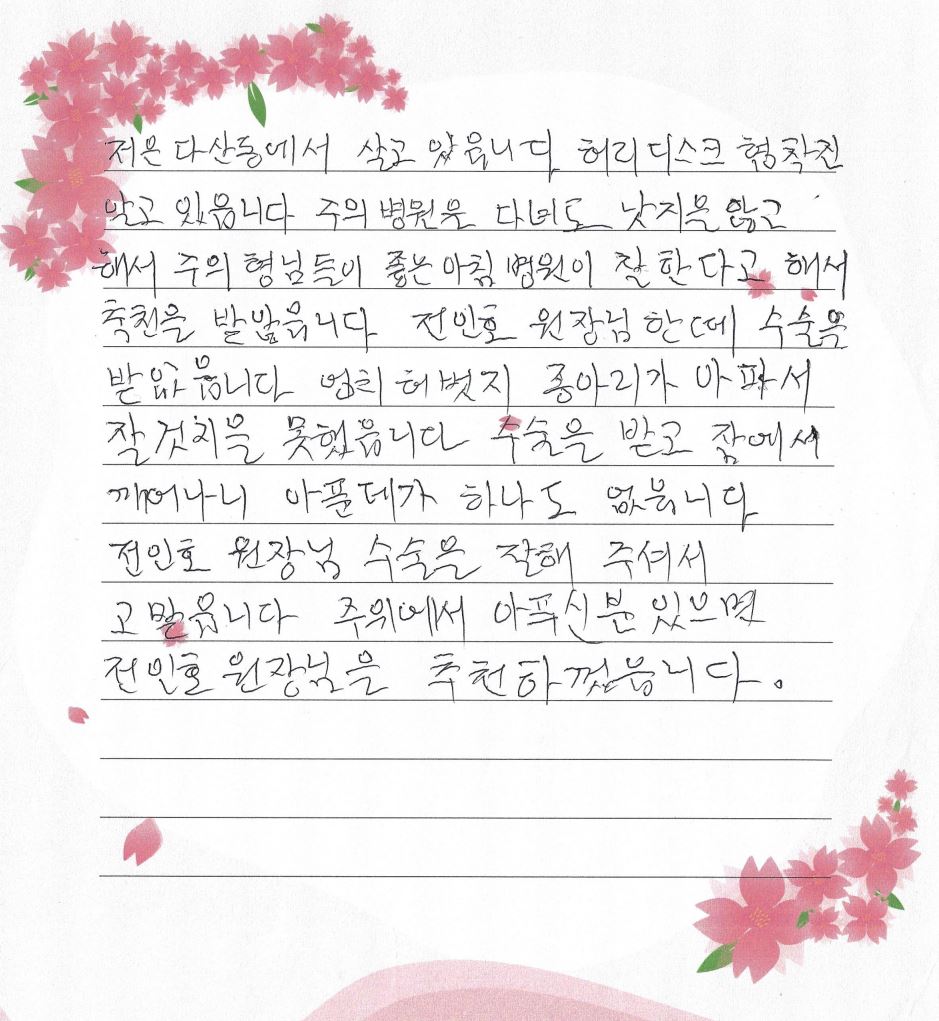 저은 다산동에서 살고 있읍니다 허리디스크 협착진
알고 있읍니다 주의 병원을 다녀도 낫지을 않고
해서 주의 형님들이 좋은아침 병원이 잘 한다고 해서
축천을 발았읍니다 전인호 원장님 한데 수술을
받았읍니다 엉치 허벗지 종아리가 아파서
잘것치을 못했읍니다 수술을 받고 잠에서
깨어나니 아픈데가 하나도 없읍니다
전인호 원장님 수술을 잘해 주셔서
고맙읍니다 주위에서 아푸신분 있으면
전인호 원장님을 추천하겠읍니다.